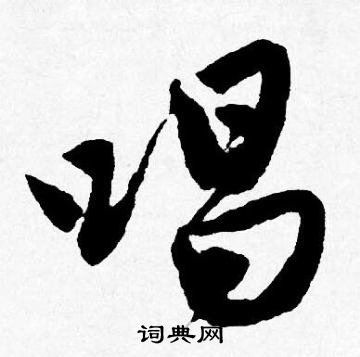 唱
词典网